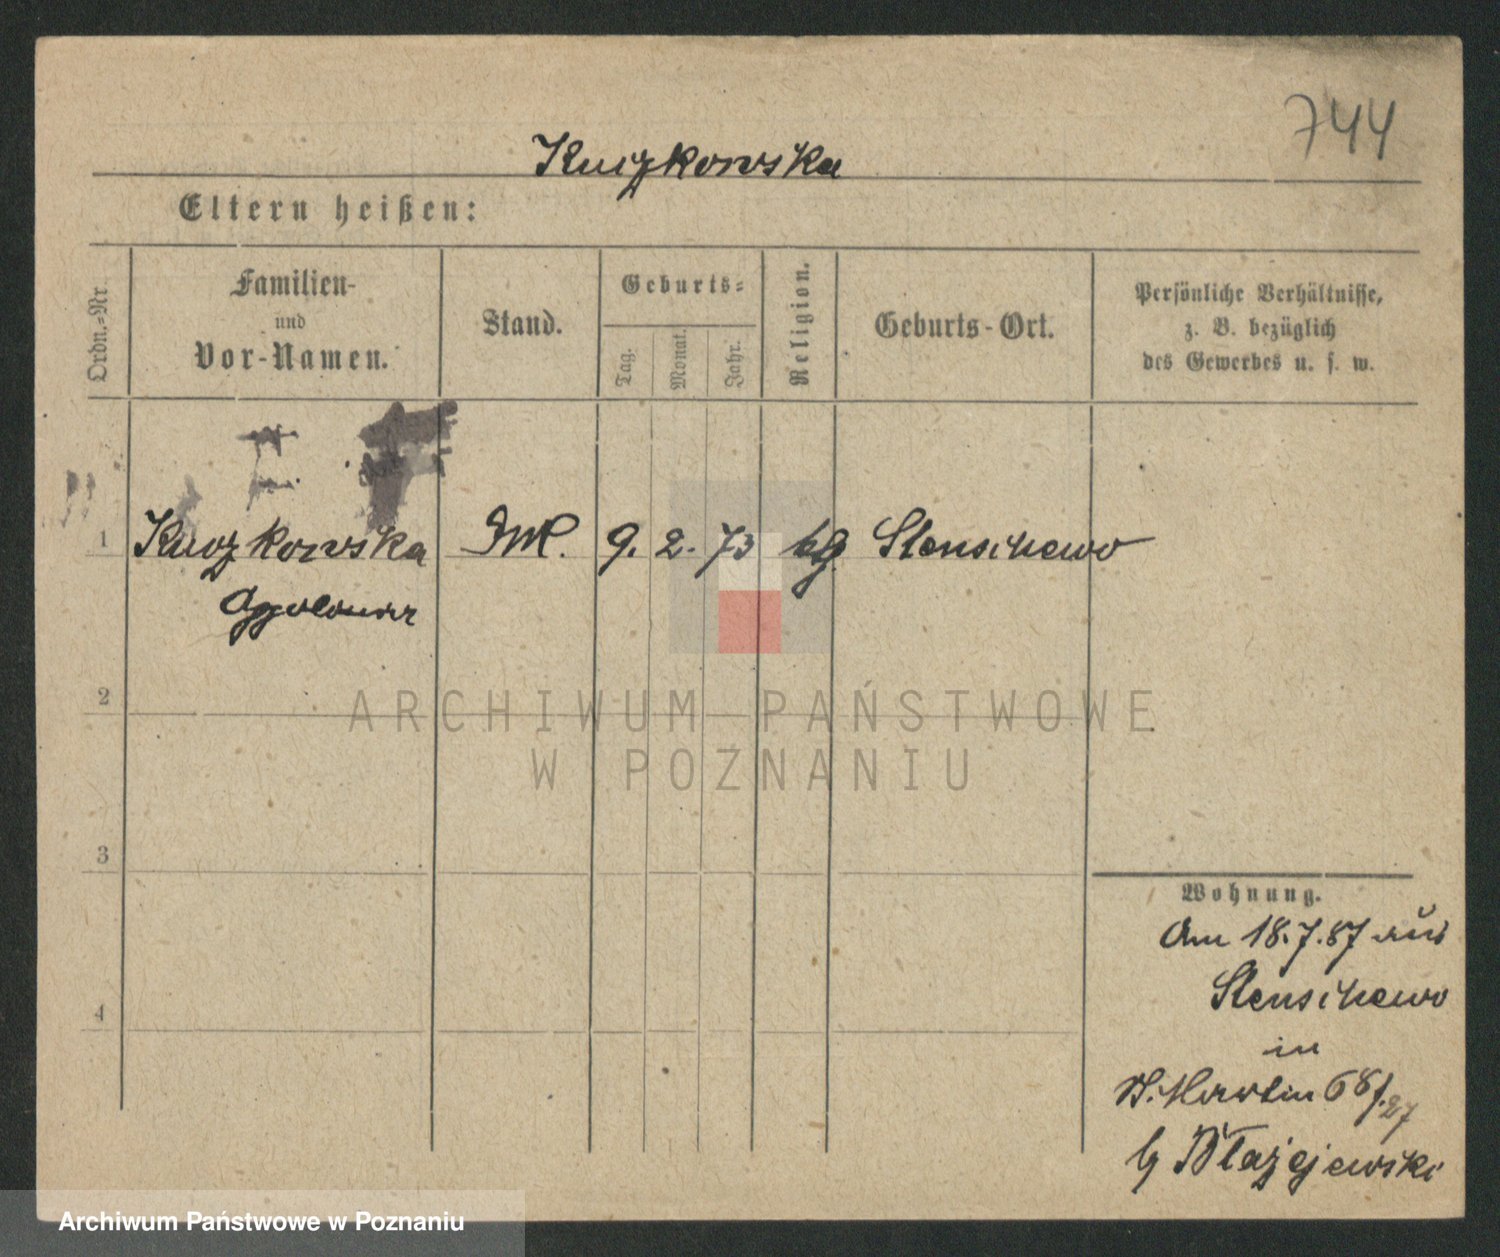 744
Kuczkowska
Eltern heißen:
Ordn.-Nr.
Familien-
und
Vor-Namen.
Stand.
Geburts-
Tag.
Monat.
Jahr.
Religion.
Geburts-Ort.
Persönliche Verhältnisse,
z. B. bezüglich
des Gewerbes u. s. w.
1 Kuczkowska 9. 2. 73 Stenschewo
Appolonia
2
ARCHIWUM PAŃSTWOWE
W POZNANIU
3
4
Wohnung.
Am 18.7.87 aus
Stenschewo
in
St. Martin 68/27
b/ Błażejewski
Archiwum Państwowe w Poznaniu